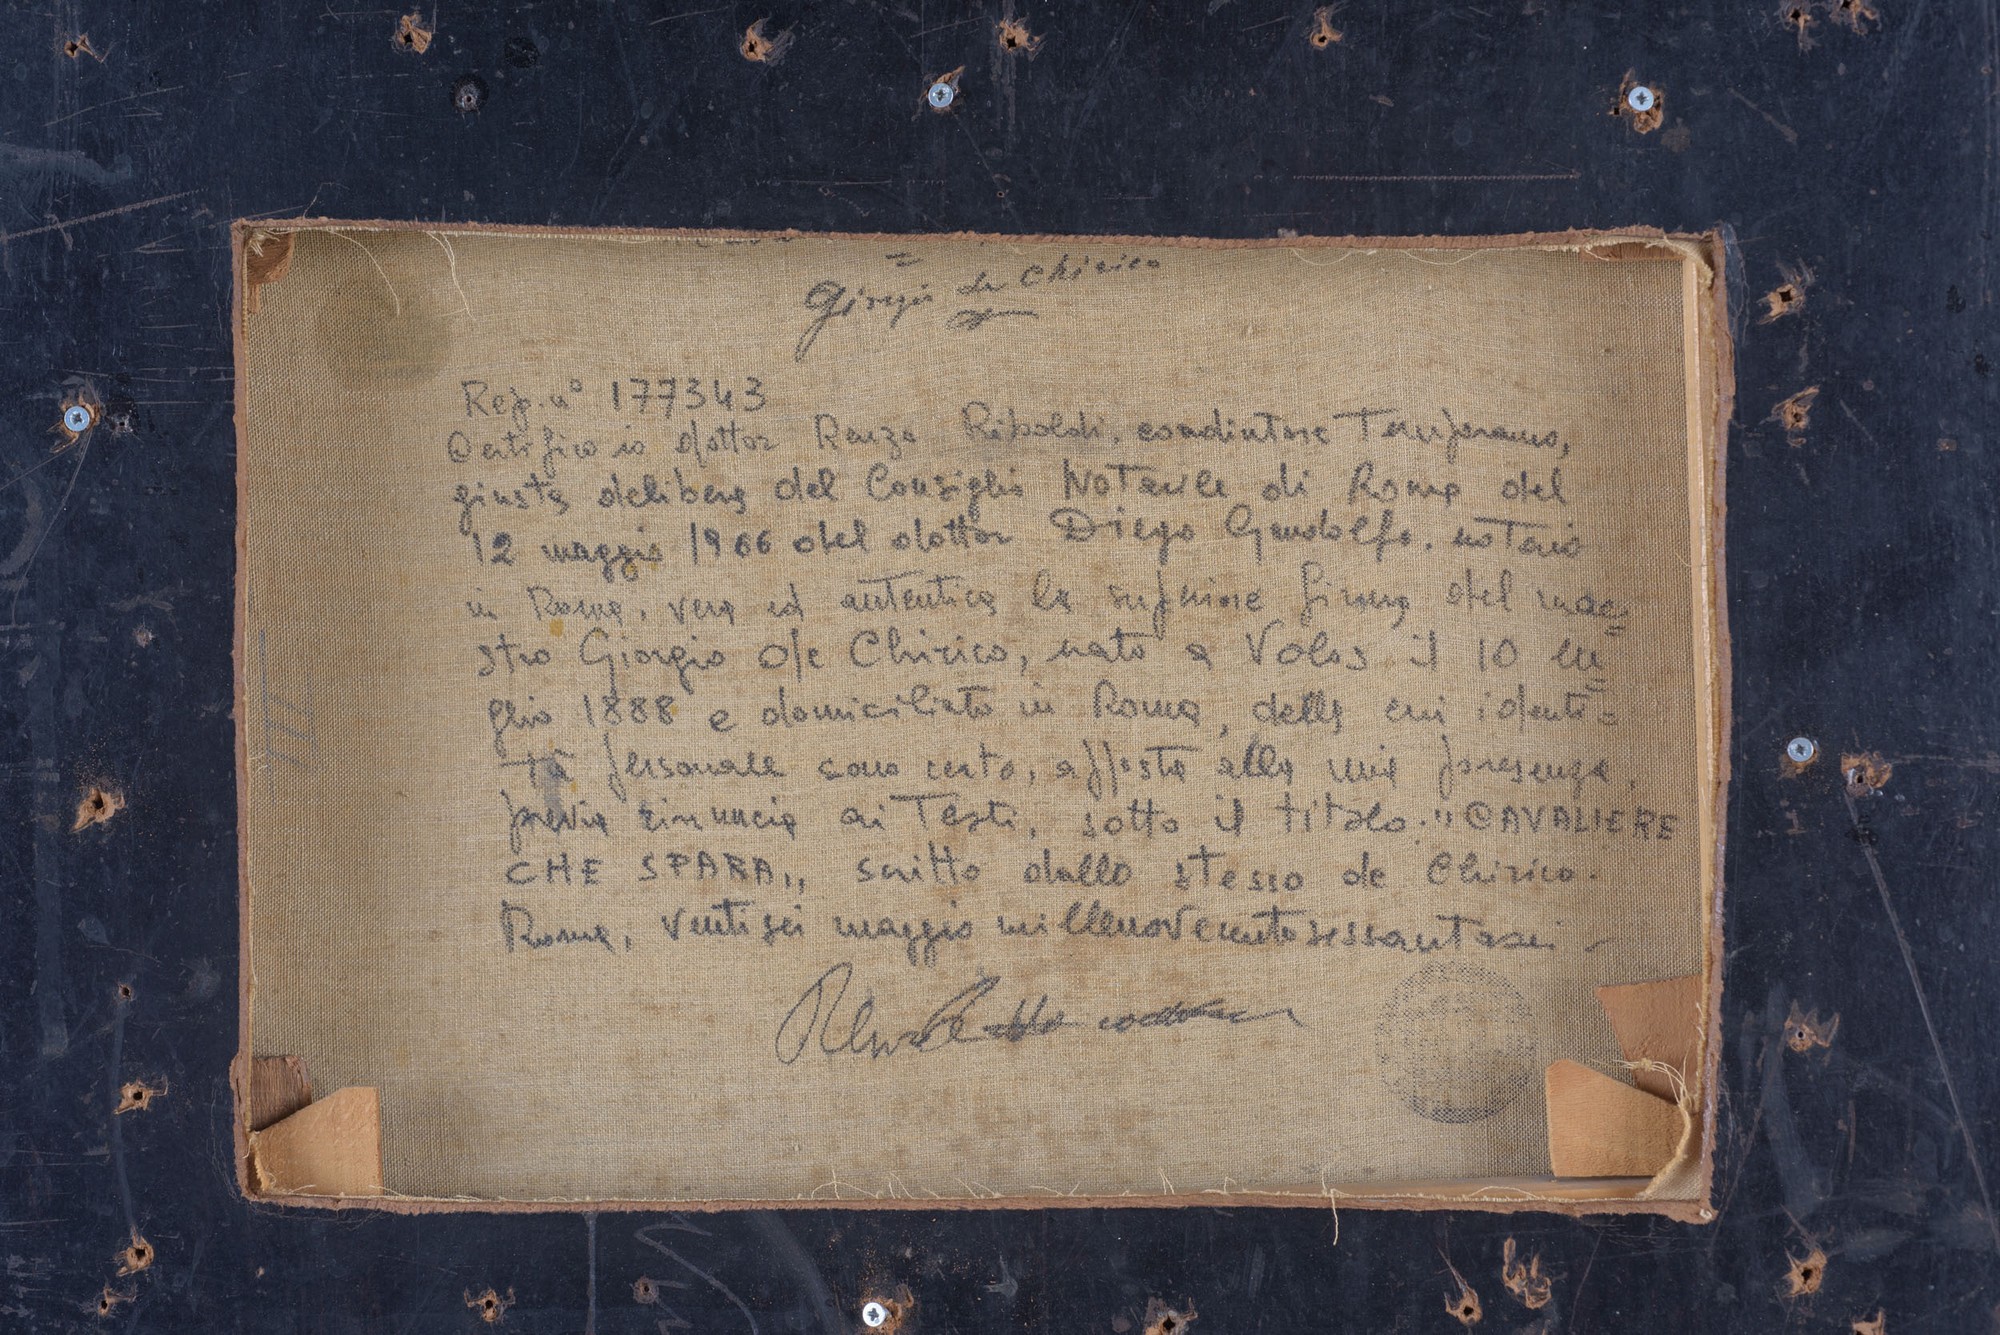 Giorgio de Chirico
Rep. n° 177343
Certifico io dottor Renzo Riboldi, coadiutore Temporaneo,
giusta delibera del Consiglio Notarile di Roma del
12 maggio 1966 del dottor Diego Gandolfo, notaio
in Roma, vera ed autentica la superiore firma del mae=
stro Giorgio de Chirico, nato a Volos il 10 lu=
glio 1888 e domiciliato in Roma, della cui identi=
tà personale sono certo, apposta alla mia presenza,
previa rinuncia ai Testi, sotto il titolo "CAVALIERE
CHE SPARA„ scritto dallo stesso de Chirico.
Roma, ventisei maggio millenovecentosessantasei -